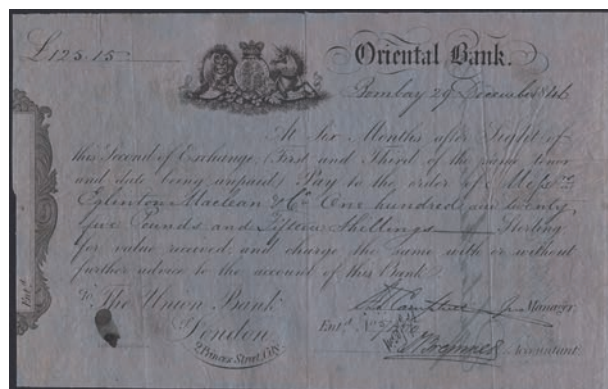 £125.15
Oriental Bank.
Bombay 29 December 1846
At Six Months after Sight of
this Second of Exchange, (First and Third of the same tenor
and date being unpaid) Pay to the order of Mess.rs
Eglinton Maclean & Co. One hundred and twenty
five Pounds and Fifteen Shillings Sterling
for value received, and charge the same with or without
further advice to the account of this Bank
To The Union Bank
London
2 Princes Street, City.
Manager
Ent.d No.
Accountant
Ent.d